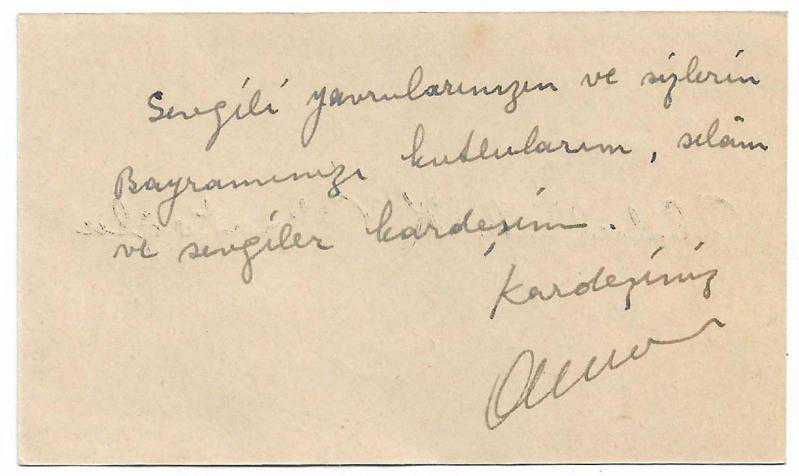 Sevgili yavrularınızın ve sizlerin
Bayramınızı kutlularım, selâm
ve sevgiler kardeşim.
Kardeşiniz